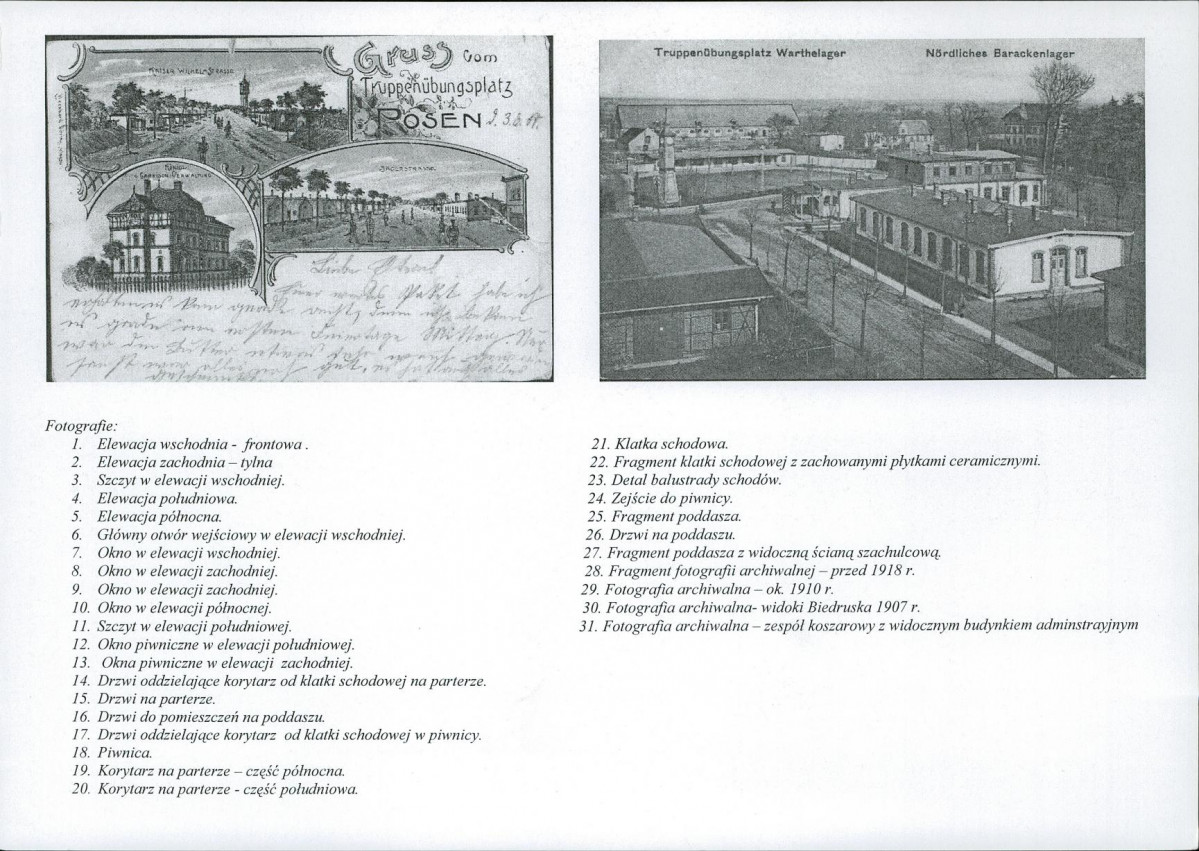 Gruss vom
Truppenübungsplatz
POSEN
KAISER WILHELMSTRASSE
GARNISON-VERWALTUNG
Truppenübungsplatz Warthelager
Nördliches Barackenlager
Fotografie:
1. Elewacja wschodnia - frontowa .
2. Elewacja zachodnia – tylna
3. Szczyt w elewacji wschodniej.
4. Elewacja południowa.
5. Elewacja północna.
6. Główny otwór wejściowy w elewacji wschodniej.
7. Okno w elewacji wschodniej.
8. Okno w elewacji zachodniej.
9. Okno w elewacji zachodniej.
10. Okno w elewacji północnej.
11. Szczyt w elewacji południowej.
12. Okno piwniczne w elewacji południowej.
13. Okna piwniczne w elewacji zachodniej.
14. Drzwi oddzielające korytarz od klatki schodowej na parterze.
15. Drzwi na parterze.
16. Drzwi do pomieszczeń na poddaszu.
17. Drzwi oddzielające korytarz od klatki schodowej w piwnicy.
18. Piwnica.
19. Korytarz na parterze – część północna.
20. Korytarz na parterze - część południowa.
21. Klatka schodowa.
22. Fragment klatki schodowej z zachowanymi płytkami ceramicznymi.
23. Detal balustrady schodów.
24. Zejście do piwnicy.
25. Fragment poddasza.
26. Drzwi na poddaszu.
27. Fragment poddasza z widoczną ścianą szachulcową.
28. Fragment fotografii archiwalnej – przed 1918 r.
29. Fotografia archiwalna – ok. 1910 r.
30. Fotografia archiwalna- widoki Biedruska 1907 r.
31. Fotografia archiwalna – zespół koszarowy z widocznym budynkiem adminstrayjnym